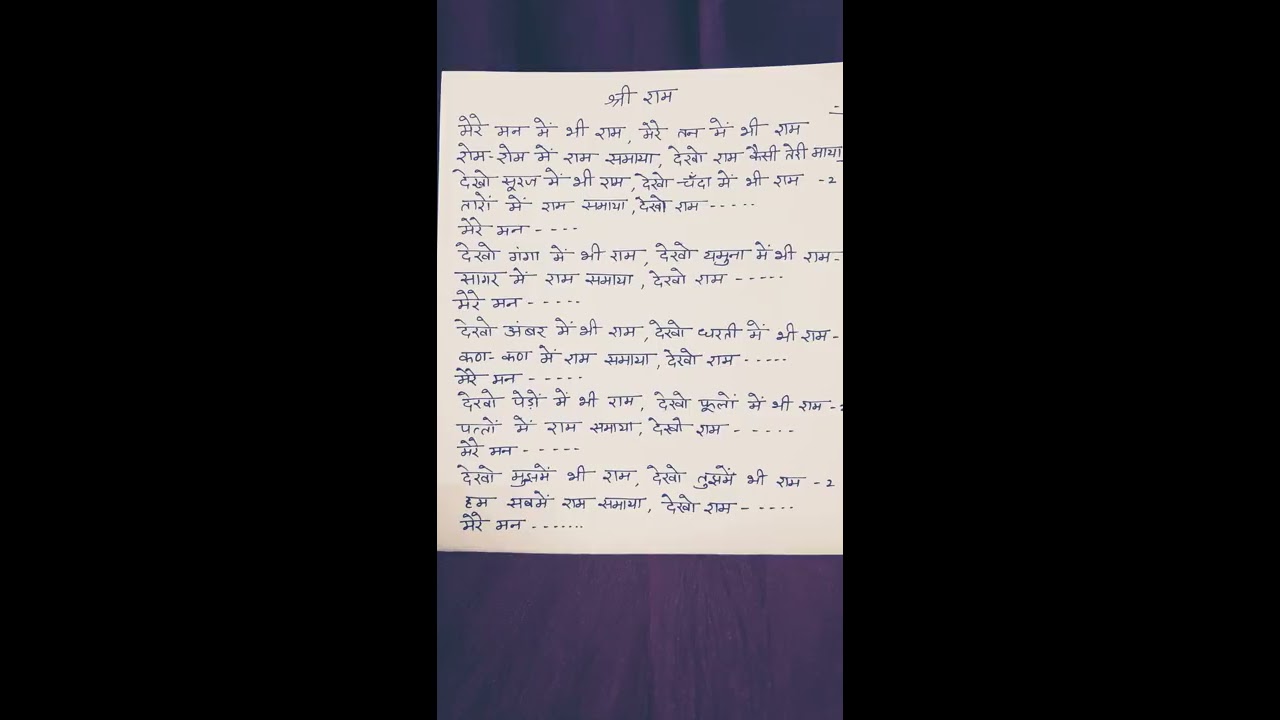 श्री राम
मेरे मन में भी राम, मेरे तन में भी राम
रोम-रोम में राम समाया, देखो राम कैसी तेरी माया
देखो सूरज में भी राम, देखो चँदा में भी राम -2
तारों में राम समाया, देखो राम -----
मेरे मन ----
देखो गंगा में भी राम, देखो यमुना में भी राम-
सागर में राम समाया, देखो राम -----
मेरे मन -----
देखो अंबर में भी राम, देखो धरती में भी राम-
कण-कण में राम समाया, देखो राम -----
मेरे मन -----
देखो पेड़ों में भी राम, देखो फूलों में भी राम-2
पत्तों में राम समाया, देखो राम -----
मेरे मन -----
देखो मुझमें भी राम, देखो तुझमें भी राम -2
हम सबमें राम समाया, देखो राम -----
मेरे मन -------